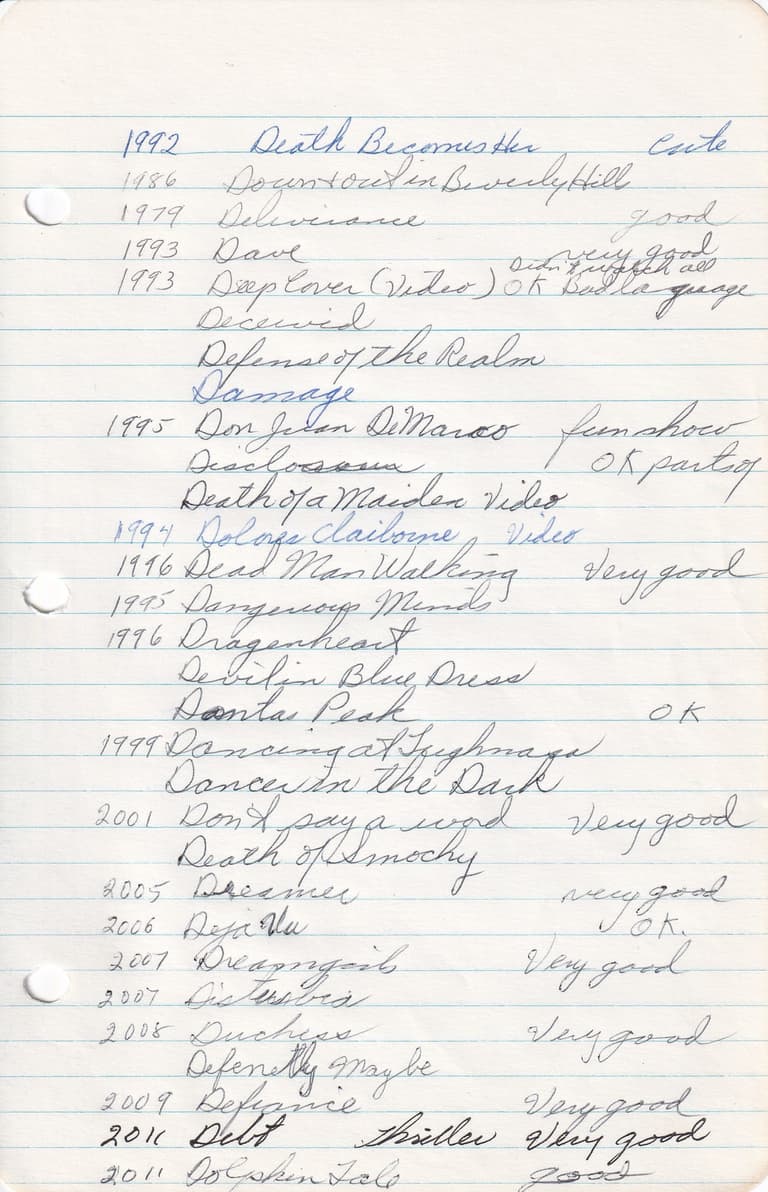 1992 Death Becomes Her Cute
1986 Down + out in Beverly Hill
1979 Deliverance good
1993 Dave very good
Didn't watch all
1993 Deep Cover (Video) OK Bad language
Deceived
Defense of the Realm
Damage
1995 Don Juan DeMarco fun show
Disclosure OK parts of
Death of a Maiden Video
1994 Dolores Claiborne Video
1996 Dead Man Walking Very good
1995 Dangerous Minds
1996 Dragenheart
Devil in Blue Dress
Dantas Peak OK
1999 Dancing at Lughnasa
Dancer in the Dark
2001 Don't say a word Very good
Death of Smochy
2005 Dreamer very good
2006 Deja Vu OK.
2007 Dreamgirls Very good
2007 Disturbia
2008 Duchess Very good
Defenetly Maybe
2009 Defiance Very good
2011 Debt thriller Very good
2011 Dolphin Tale good